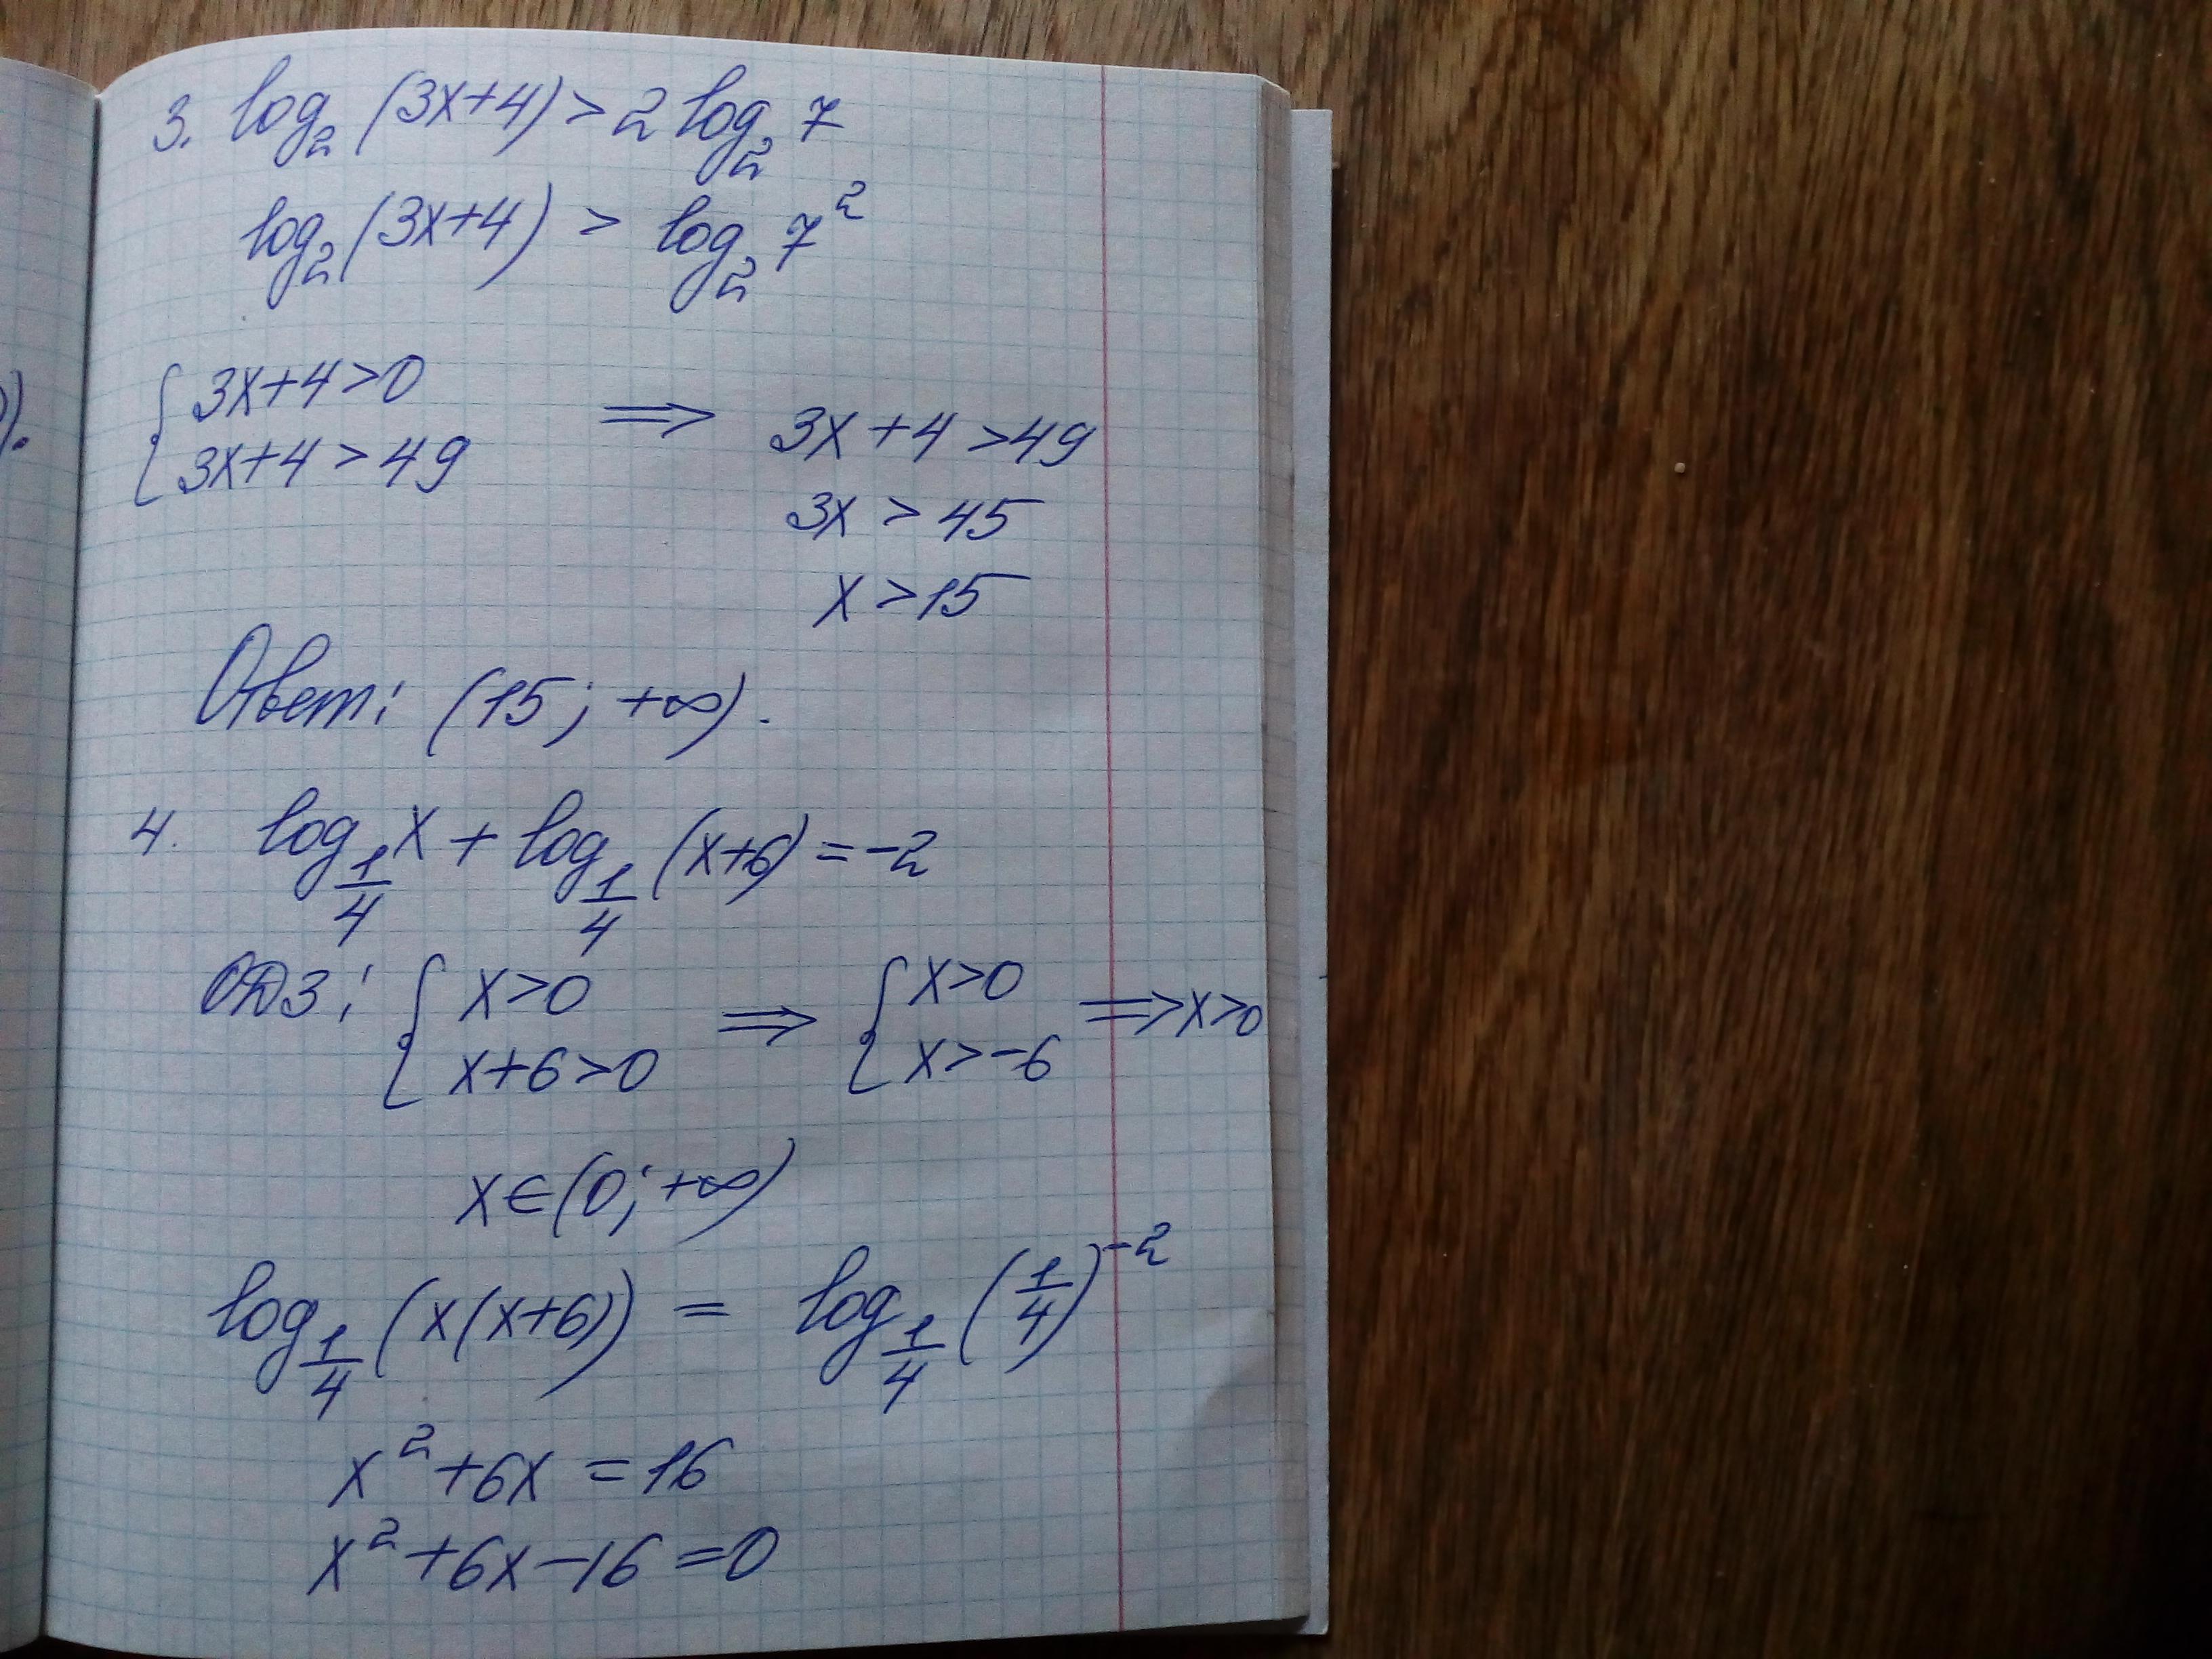 3. log₂(3x+4) > 2 log₂ 7
log₂(3x+4) > log₂ 7²
{ 3x+4>0
3x+4>49 ⟹ 3x+4>49
3x > 45
x > 15
Ответ: (15; +∞).
4. log_{1/4} x + log_{1/4} (x+6) = -2
ОДЗ: { x>0
x+6>0 ⟹ { x>0
x>-6 ⟹ x>0
x∈(0; +∞)
log_{1/4} (x(x+6)) = log_{1/4} (1/4)⁻²
x²+6x = 16
x²+6x-16=0
).